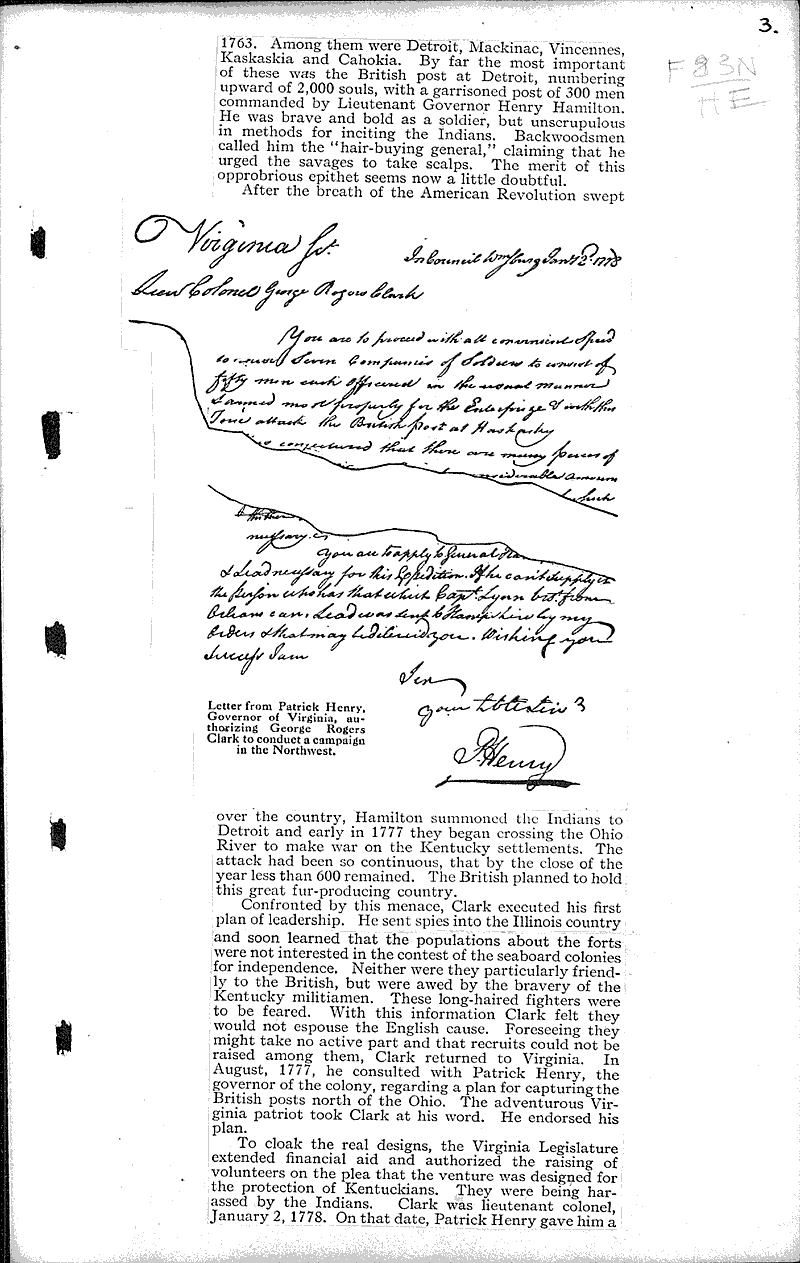 3.
F83N
HE
1763. Among them were Detroit, Mackinac, Vincennes,
Kaskaskia and Cahokia. By far the most important
of these was the British post at Detroit, numbering
upward of 2,000 souls, with a garrisoned post of 300 men
commanded by Lieutenant Governor Henry Hamilton.
He was brave and bold as a soldier, but unscrupulous
in methods for inciting the Indians. Backwoodsmen
called him the "hair-buying general," claiming that he
urged the savages to take scalps. The merit of this
opprobrious epithet seems now a little doubtful.
After the breath of the American Revolution swept
Virginia Sct.
In Council Wmsburg Jany 2d. 1778
Lieut Colonel George Rogers Clark
You are to proceed with all convenient Speed
to Seven Companies of Soldiers to consist of
fifty men each officered in the usual manner
& armed most properly for the Enterprize & with this
Force attack the British post at Kaskasky
conjectured that there are many pieces of
considerable amount
which
necessary
You are to apply to General
& Lead necessary for this Expedition. If he can't supply it
the person who has that which Capt. Lynn brt. from
Orleans can. Lead was sent to Hampshire by my
Orders & that may be delivered you. Wishing you
Success I am
Sir
your
P. Henry
Letter from Patrick Henry,
Governor of Virginia, au-
thorizing George Rogers
Clark to conduct a campaign
in the Northwest.
over the country, Hamilton summoned the Indians to
Detroit and early in 1777 they began crossing the Ohio
River to make war on the Kentucky settlements. The
attack had been so continuous, that by the close of the
year less than 600 remained. The British planned to hold
this great fur-producing country.
Confronted by this menace, Clark executed his first
plan of leadership. He sent spies into the Illinois country
and soon learned that the populations about the forts
were not interested in the contest of the seaboard colonies
for independence. Neither were they particularly friend-
ly to the British, but were awed by the bravery of the
Kentucky militiamen. These long-haired fighters were
to be feared. With this information Clark felt they
would not espouse the English cause. Foreseeing they
might take no active part and that recruits could not be
raised among them, Clark returned to Virginia. In
August, 1777, he consulted with Patrick Henry, the
governor of the colony, regarding a plan for capturing the
British posts north of the Ohio. The adventurous Vir-
ginia patriot took Clark at his word. He endorsed his
plan.
To cloak the real designs, the Virginia Legislature
extended financial aid and authorized the raising of
volunteers on the plea that the venture was designed for
the protection of Kentuckians. They were being har-
assed by the Indians. Clark was lieutenant colonel,
January 2, 1778. On that date, Patrick Henry gave him a